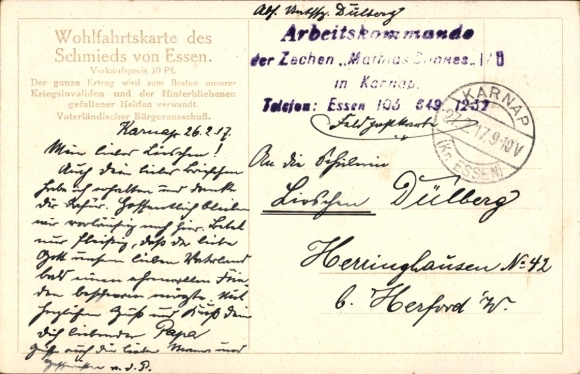 Abs. Untffz. Dülberg
Wohlfahrtskarte des
Schmieds von Essen.
Verkaufspreis 10 Pf.
Der ganze Ertrag wird zum Besten unserer
Kriegsinvaliden und der Hinterbliebenen
gefallener Helden verwandt.
Vaterländischer Bürgerausschuß.
Arbeitskommando
der Zechen „Mathias Stinnes" I/II
in Karnap.
Telefon: Essen 103 849. 1232
Feldpostkarte
KARNAP
27.2.17.9-10V
(Kr. ESSEN)
Karnap 26.2.17.
Mein liebes Lieschen!
Auch dein liebes Briefchen
habe ich erhalten und danke
dir dafür. Hoffentlich bleiben
wir vorläufig noch hier. Betet
nur fleißig, daß der liebe
Gott unsern lieben Vaterland
bald einen ehrenvollen Frie-
den bescheren möge. Mit
herzlichen Gruß und Kuß dein
dich liebender Papa
Grüße auch die liebe Mama und
Geschwister v. d. P.
An die Schülerin
Lieschen Dülberg
Herringhausen No 42
b. Herford i/W.